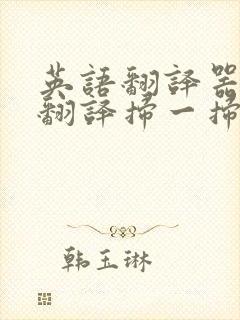 英語翻譯器
翻譯掃一掃
韩玉琳